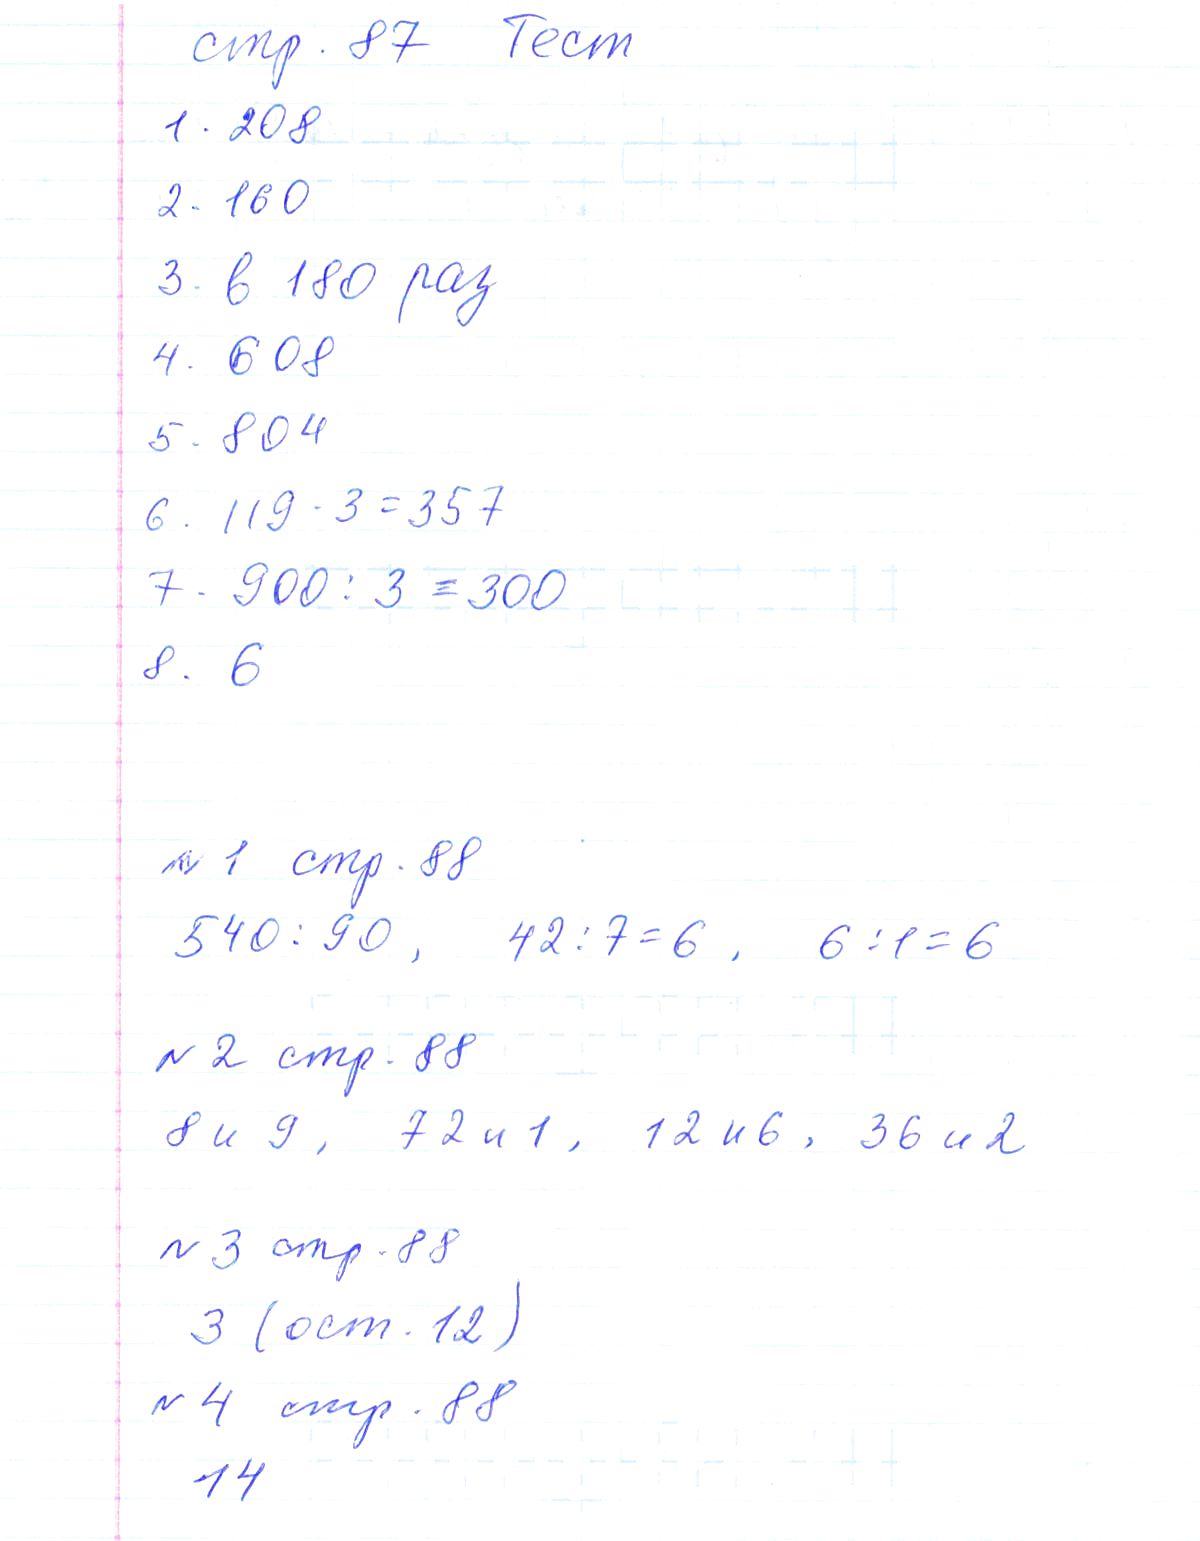 стр. 87 Тест
1. 208
2. 160
3. в 180 раз
4. 608
5. 804
6. 119 · 3 = 357
7. 900 : 3 = 300
8. 6
№1 стр. 88
540 : 90, 42 : 7 = 6, 6 : 1 = 6
№2 стр. 88
8 и 9, 72 и 1, 12 и 6, 36 и 2
№3 стр. 88
3 (ост. 12)
№4 стр. 88
14